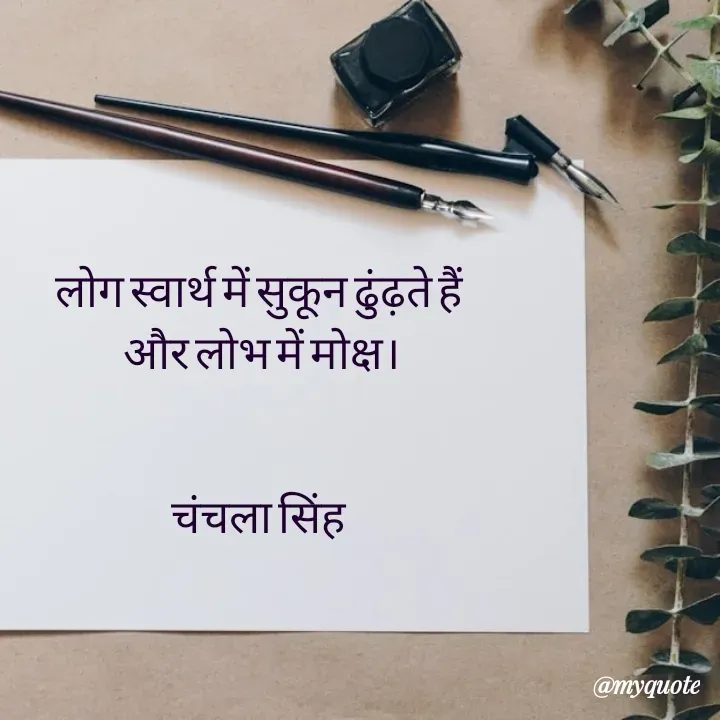 लोग स्वार्थ में सुकून ढुंढ़ते हैं
और लोभ में मोक्ष।
चंचला सिंह
@myquote